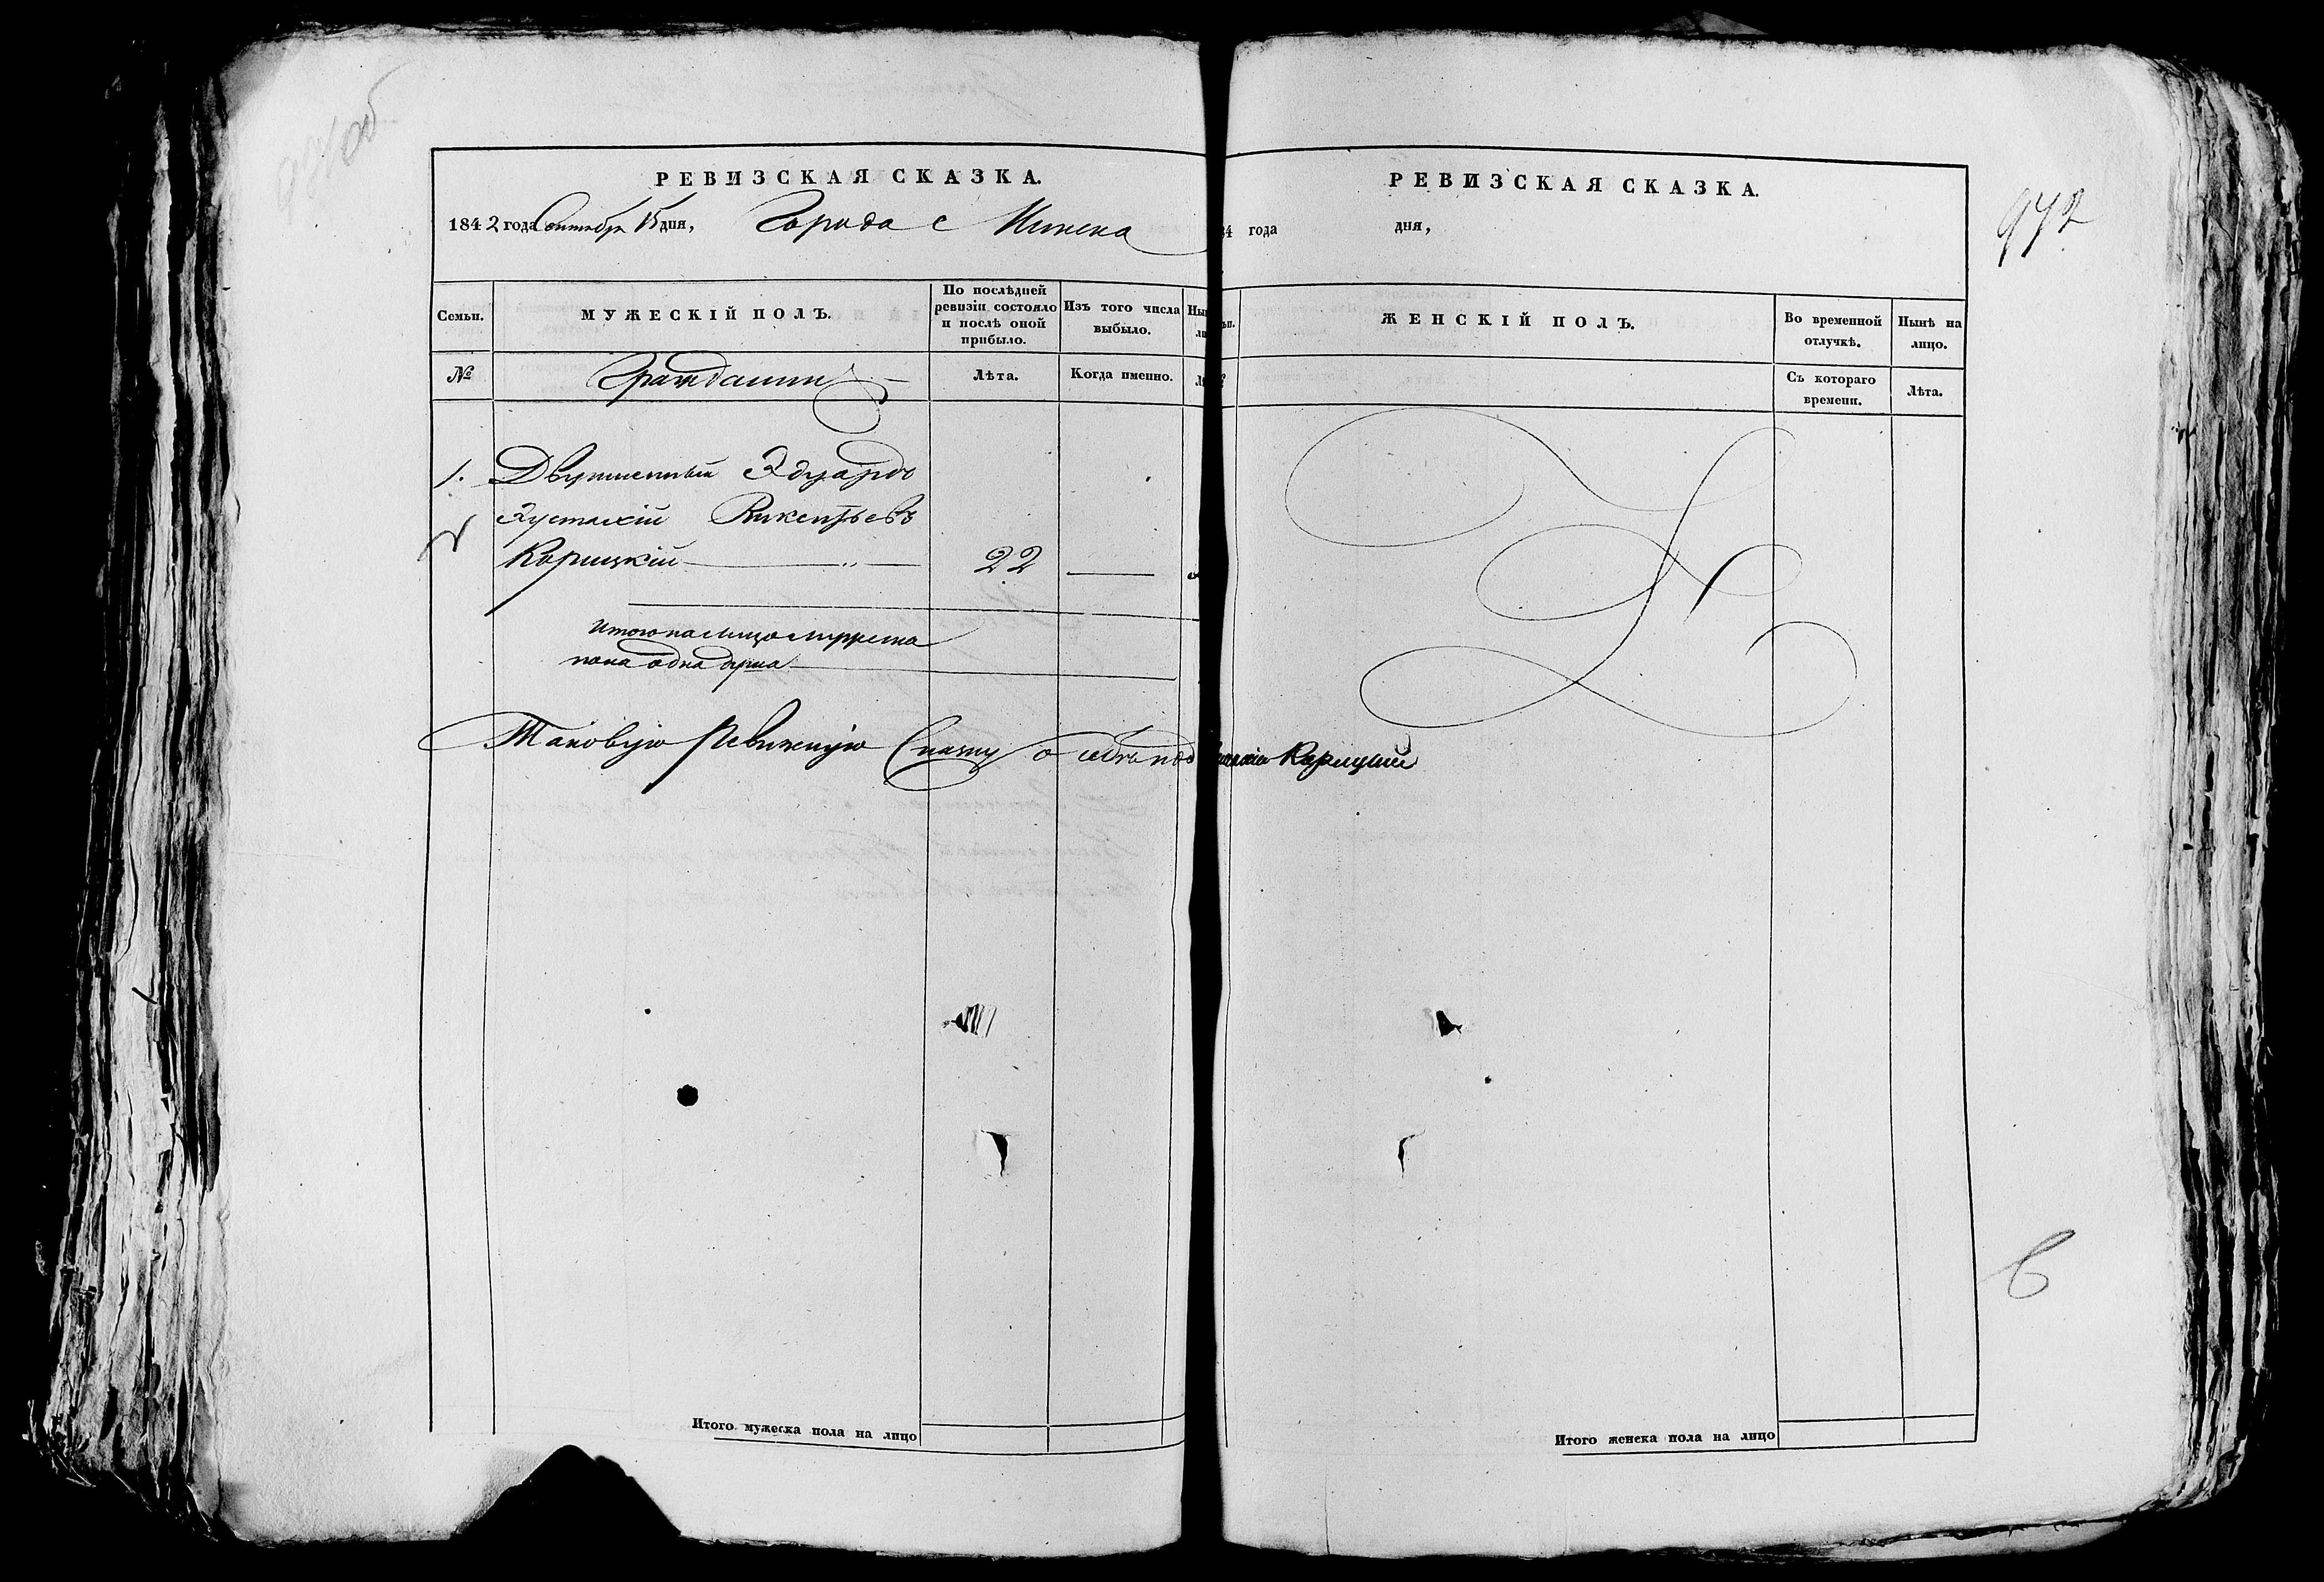 РЕВИЗСКАЯ СКАЗКА.
1842 года Сентября 15 дня, Города Минска
Семьи.
МУЖЕСКІЙ ПОЛЪ.
По послѣдней ревизіи состояло и послѣ оной прибыло.
Изъ того числа выбыло.
№
Гражданин
Лѣта.
Когда именно.
1. Двуименный Эдуардъ
Эустахій Викентьевъ
Корицкій 22
Итого на лицо мужеска
пола одна душа
Таковую Ревизкую Сказку о себѣ под
Итого мужеска пола на лицо
РЕВИЗСКАЯ СКАЗКА.
972
184 года дня,
ЖЕНСКІЙ ПОЛЪ.
Во временной отлучкѣ.
Нынѣ на лицо.
Съ котораго времени.
Лѣта.
Корицкий
Итого женска пола на лицо